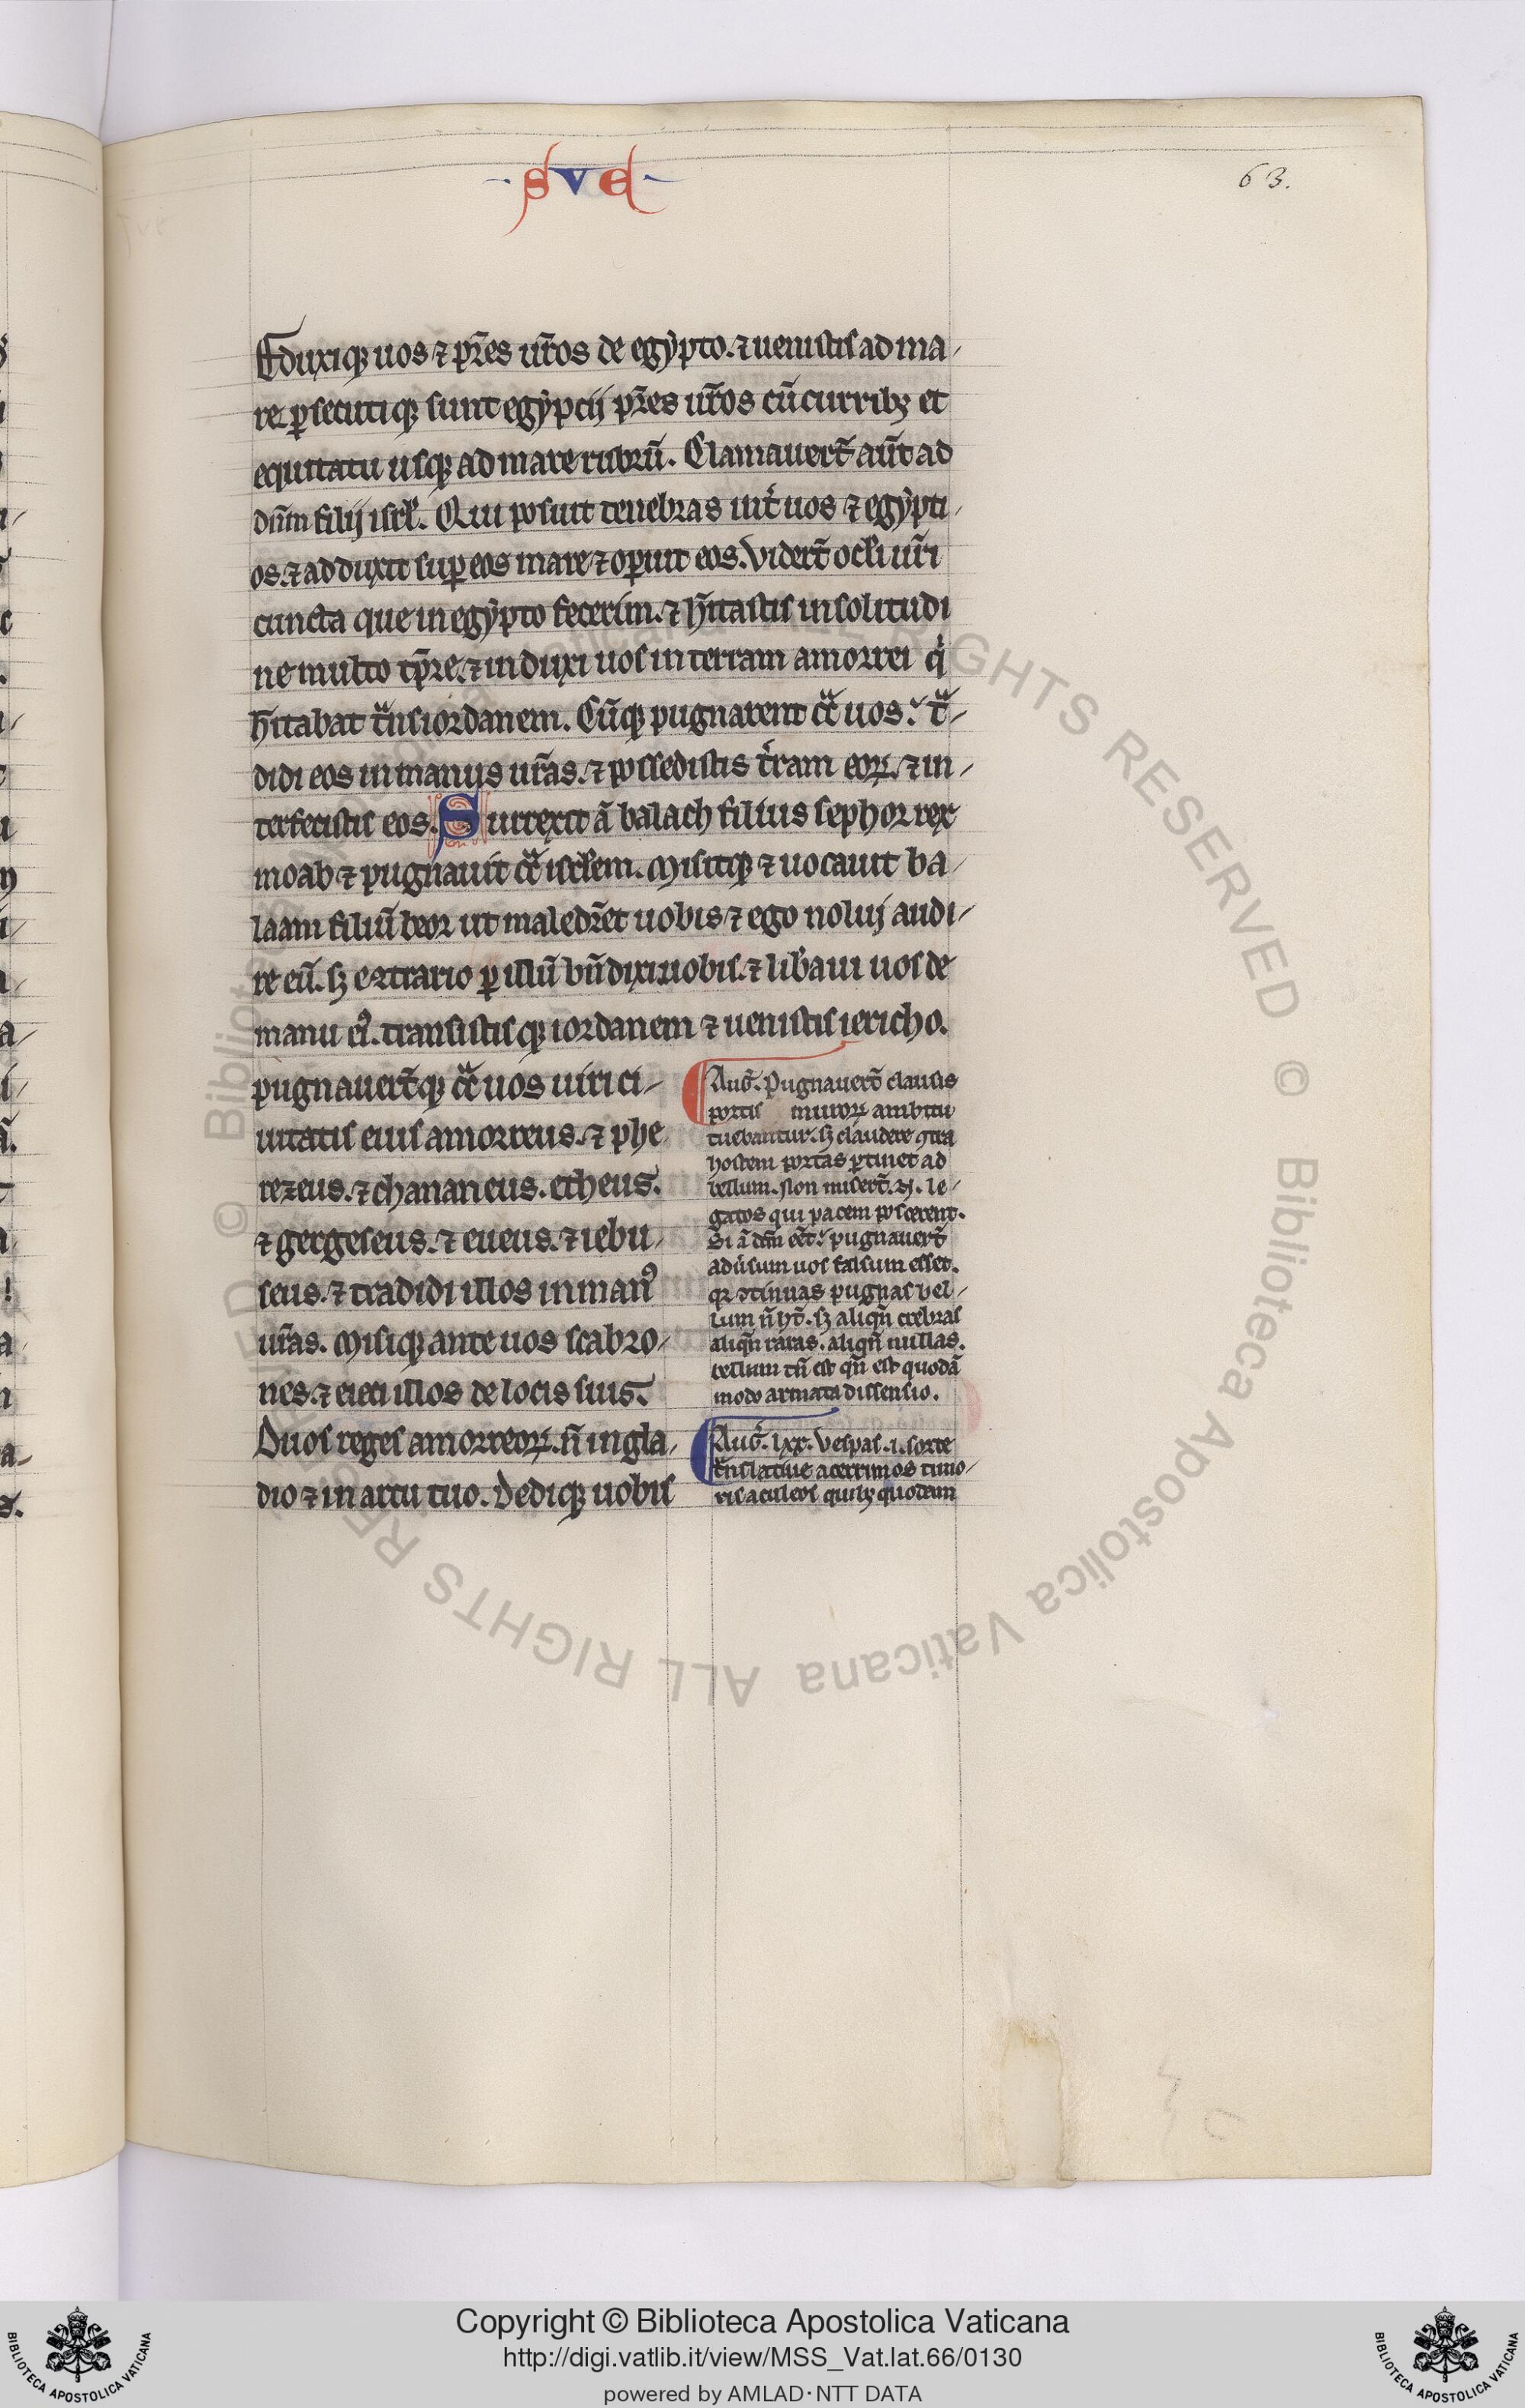 · s v e ·
63.
Eduxiq; uos ⁊ pr̃es ur̃os de egẏpto. ⁊ uenistis ad ma/
re. ꝑsecutiq; sunt egẏpcij pr̃es ur̃os cũ curribꝫ et
equitatu usq; ad mare rubrũ. Clamauert̃ aũt ad
dñm filij isrł. Qui posuit tenebras int̾ uos ⁊ egẏpti/
os. ⁊ adduxit suꝑ eos mare ⁊ operuit eos. Vidert̃ ocłi ur̃i
cuncta que in egẏpto fecerim. ⁊ hĩtastis in solitudi
ne multo tp̃re. ⁊ induxi uos in terram amorrei qͥ
hĩtabat tͣnsiordanem. Cũq; pugnarent cͣ uos. tͣ/
didi eos in manus ur̃as. ⁊ possedistis t̾ram eoꝝ. ⁊ in/
terfecistis eos. Surrexit ã balach filius sephor rex
moab ⁊ pugnauit cͣ isrłem. Misitq; ⁊ uocauit ba/
laam filiũ beor ut maledr̃et uobis ⁊ ego noluj audi/
re eũ. sꝫ ꝯtrario ꝑ illũ bñdixi uobis. ⁊ lib̾aui uos de
manu eiꝰ. transistisq; iordanem ⁊ uenistis iericho.
pugnauert̃q; cͣ uos uiri ci/
uitatis eius amorreus. ⁊ phe
rezeus. ⁊ chananeus. etheus.
⁊ gergeseus. ⁊ eueus. ⁊ iebu/
seus. ⁊ tradidi illos in manꝰ
ur̃as. Misiq; ante uos scabro/
nes. ⁊ eieci illos de locis suis.
Duos reges amorreoꝝ. ñ in gla/
dio ⁊ in arcu tuo. Dediq; uobis
Aug̃. Pugnauert̃ clausis
portis muroꝝ ambitu
tuebantur. sꝫ claudere ꝯtra
hostem portas ꝑtinet ad
bellum. Non misert̃. n. le/
gatos qui pacem poscerent.
Si ã dc̃m eẽt. pugnauert̃
adũsum uos falsum esset.
qꝛ ꝯtinuas pugnas bel/
lum ñ ht̃. sꝫ aliqñ crebras
aliqñ raras. aliqñ nullas.
bellum tñ est qñ est quodã
modo armata dissensio.
Aug̃. lxx. Vespas. i. forte
tͣnslatiue acerrimos timo/
ris aculeos quibꝫ quodam
Copyright © Biblioteca Apostolica Vaticana
http://digi.vatlib.it/view/MSS_Vat.lat.66/0130
powered by AMLAD·NTT DATA
BIBLIOTECA APOSTOLICA VATICANA
BIBLIOTECA APOSTOLICA VATICANA
© Biblioteca Apostolica Vaticana ALL RIGHTS RESERVED © Biblioteca Apostolica Vaticana ALL RIGHTS RESERVED